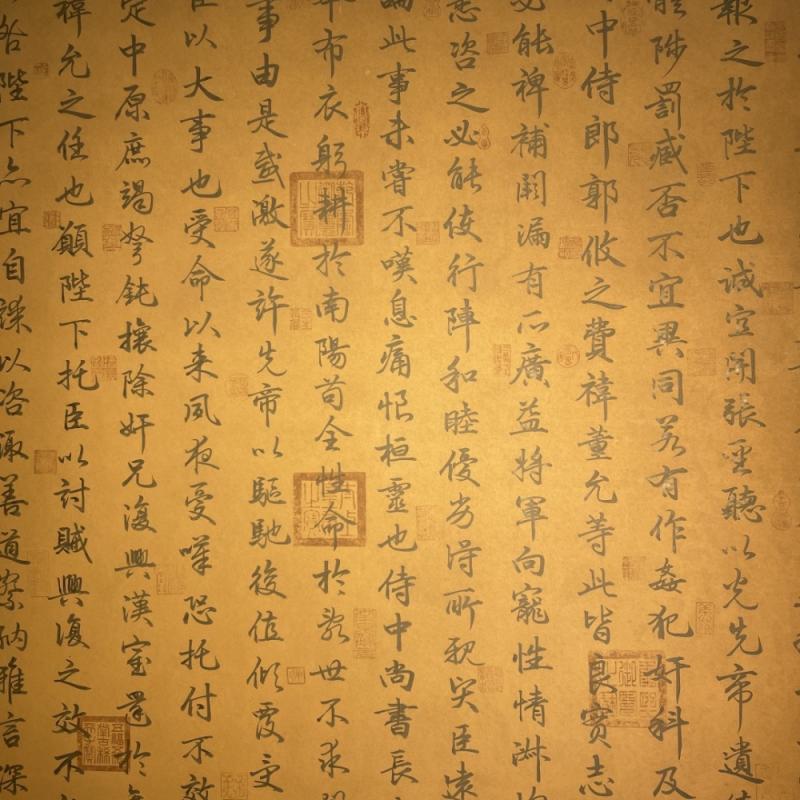 報之於陛下也誠宜開張聖聽以光先帝遺
體陟罰臧否不宜異同若有作姦犯奸科及
中侍郎郭攸之費禕董允等此皆良實志
必能裨補闕漏有所廣益將軍向寵性情淑
悉咨之必能使行陣和睦優劣得所親賢臣遠
論此事未嘗不嘆息痛恨桓靈也侍中尚書長
本布衣躬耕於南陽苟全性命於亂世不求
事由是感激遂許先帝以驅馳後值傾覆受
臣以大事也受命以来夙夜憂嘆恐托付不效
定中原庶竭駑鈍攘除奸兇復興漢室還於
禕允之任也願陛下托臣以討賊興復之效不
咎陛下亦宜自謀以咨諏善道察納雅言深